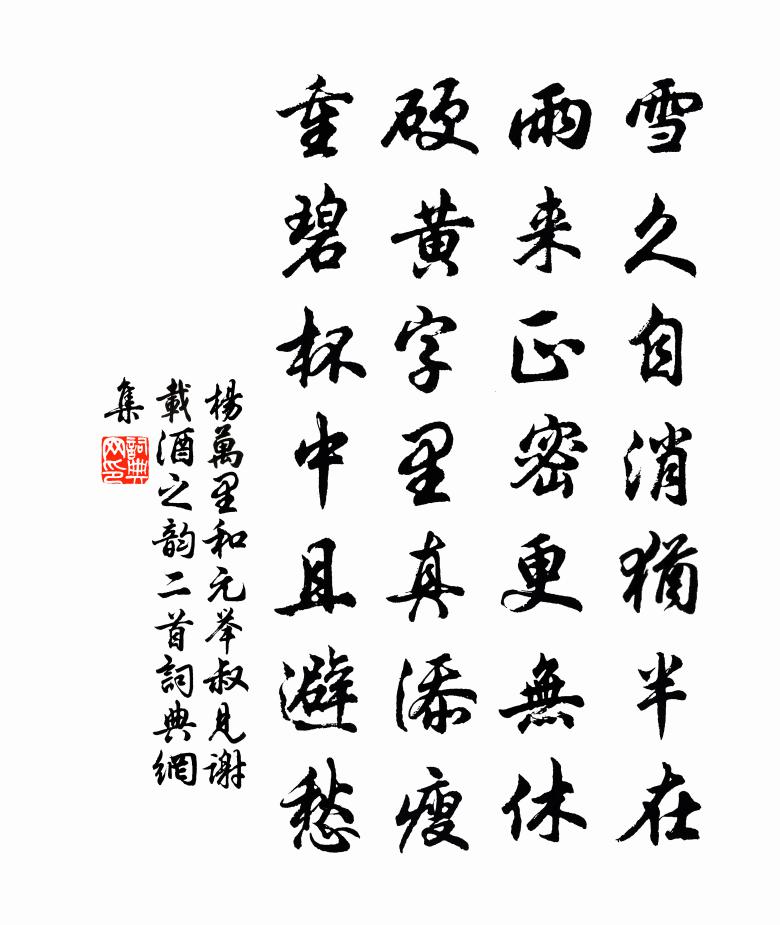 雪久自消猶半在
雨来正密更無休
硬黄字里真添瘦
重碧杯中且避愁
楊萬里和元举叔見谢
載酒之韵二首詞典網
集
詞典
网印